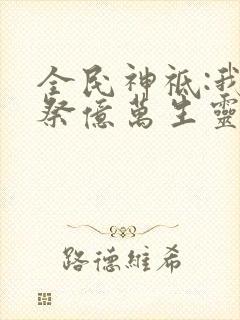 全民神祇:我
祭億萬生靈
路德維希